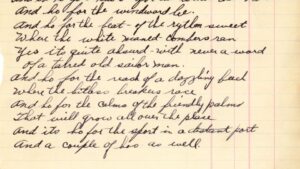 And ho for the windward lee.
And ho for the feel of the rythm sweet
Where the white maned combers ran
Yes its quite absurd with never a word
of a tarred old sailor man.
And ho for the reach of a dazzling beach
Where the breakers race
And ho for the calms of the friendly palms
That will grow all over the place
And its ho for the sport in a distant port
And a couple of as well